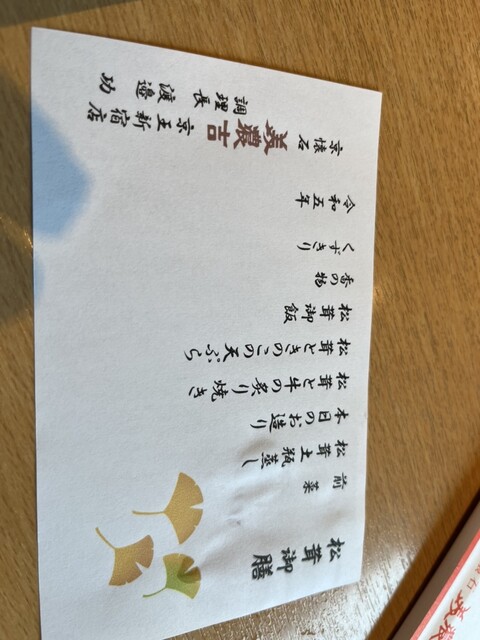 松茸御膳
前菜
松茸土瓶蒸し
本日のお造り
松茸と牛の炙り焼き
松茸ときのこの天ぷら
松茸御飯
香の物
くずきり
令和五年
京懐石
美濃吉
調理長
渡邉 功
京王新宿店